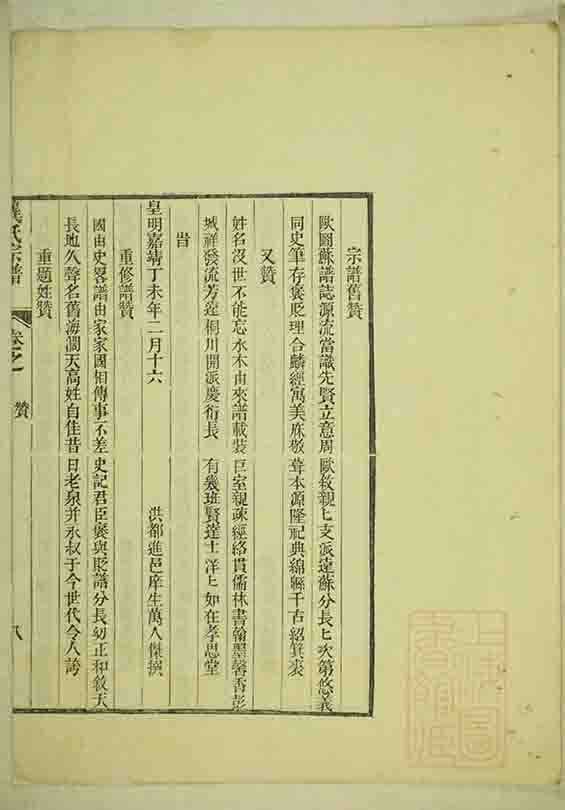 宗譜舊贊
歐圖蘇譜誌源流當識先賢立意周 歐敘親匕支派遠蘇分長匕次第悠義
同史筆存褒貶理合麟經寓美庥敬 葺本源隆祀典綿縣千古紹箕裘
又贊
姓名沒世不能忘水木由來譜載裝 巨室親疎經絡貫儒林書翰墨馨香彭
城祥發流芳遠桐川開派慶衍長 有幾班賢達士洋匕如在孝思堂
旹
皇明嘉靖丁未年二月十六 洪都進邑庠生萬人傑撰
重修譜贊
國由史畧譜由家家國相傳事不差 史記君臣褒與貶譜分長幼正和敘天
長地久聲名舊海濶天高姓自佳昔 日老泉并永叔于今世代令人誇
重題姓贊
氏宗譜 卷之 贊 八